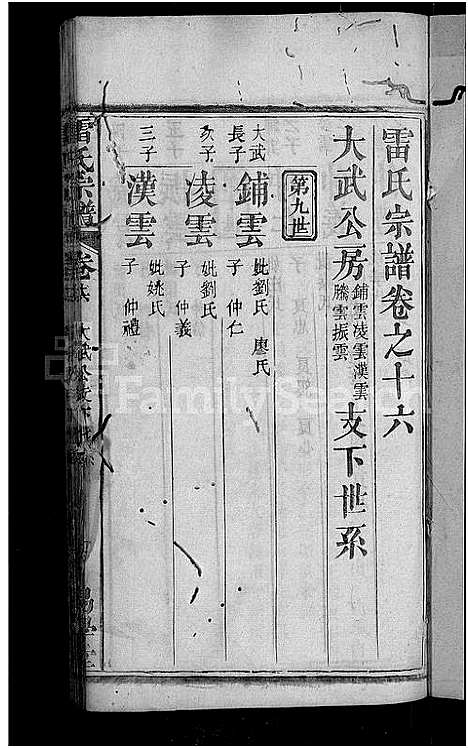 雷氏宗譜卷之十六
大武公房鋪雲凌雲漢雲騰雲振雲支下世系
第九世
大武長子 鋪雲 妣劉氏 廖氏 子 仲仁
次子 凌雲 妣劉氏 子 仲義
三子 漢雲 妣姚氏 子 仲禮
雷氏宗譜
FamilySearch